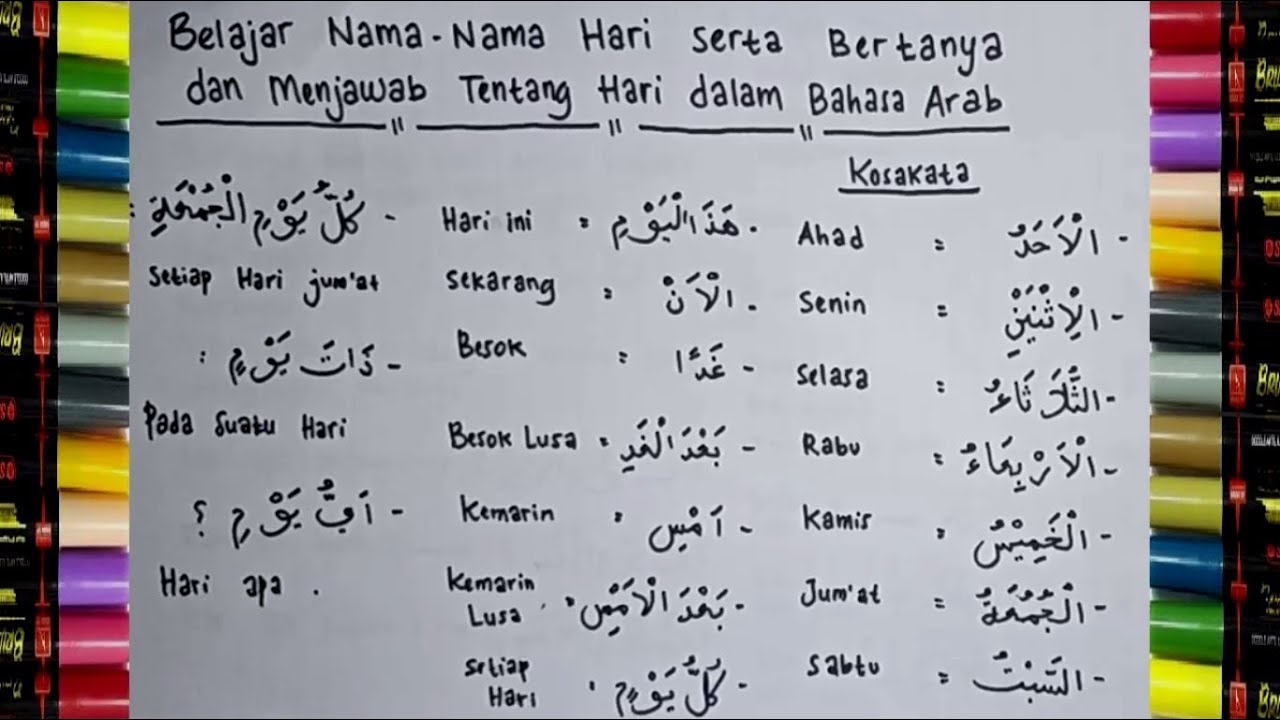 Belajar Nama-Nama Hari serta Bertanya
dan Menjawab Tentang Hari dalam Bahasa Arab
Kosakata
- الْاَحَدُ = Ahad
- الْاِثْنَيْنِ = Senin
- الثَّلَاثَاءُ = Selasa
- الْاَرْبِعَاءُ = Rabu
- الْخَمِيْسُ = Kamis
- الْجُمُعَةُ = Jum'at
- السَّبْتُ = Sabtu
- هَذَا الْيَوْمِ = Hari ini
- الْاَنْ = Sekarang
- غَدًا = Besok
- بَعْدَ الْغَدِ = Besok Lusa
- اَمْسِ = Kemarin
- بَعْدَ الْاَمْسِ = Kemarin
Lusa
- كُلُّ يَوْمٍ = Setiap
Hari
- كُلُّ يَوْمِ الْجُمُعَةِ :
Setiap Hari jum'at
- ذَاتَ يَوْمٍ :
Pada Suatu Hari
- اَيُّ يَوْمٍ ؟
Hari apa .